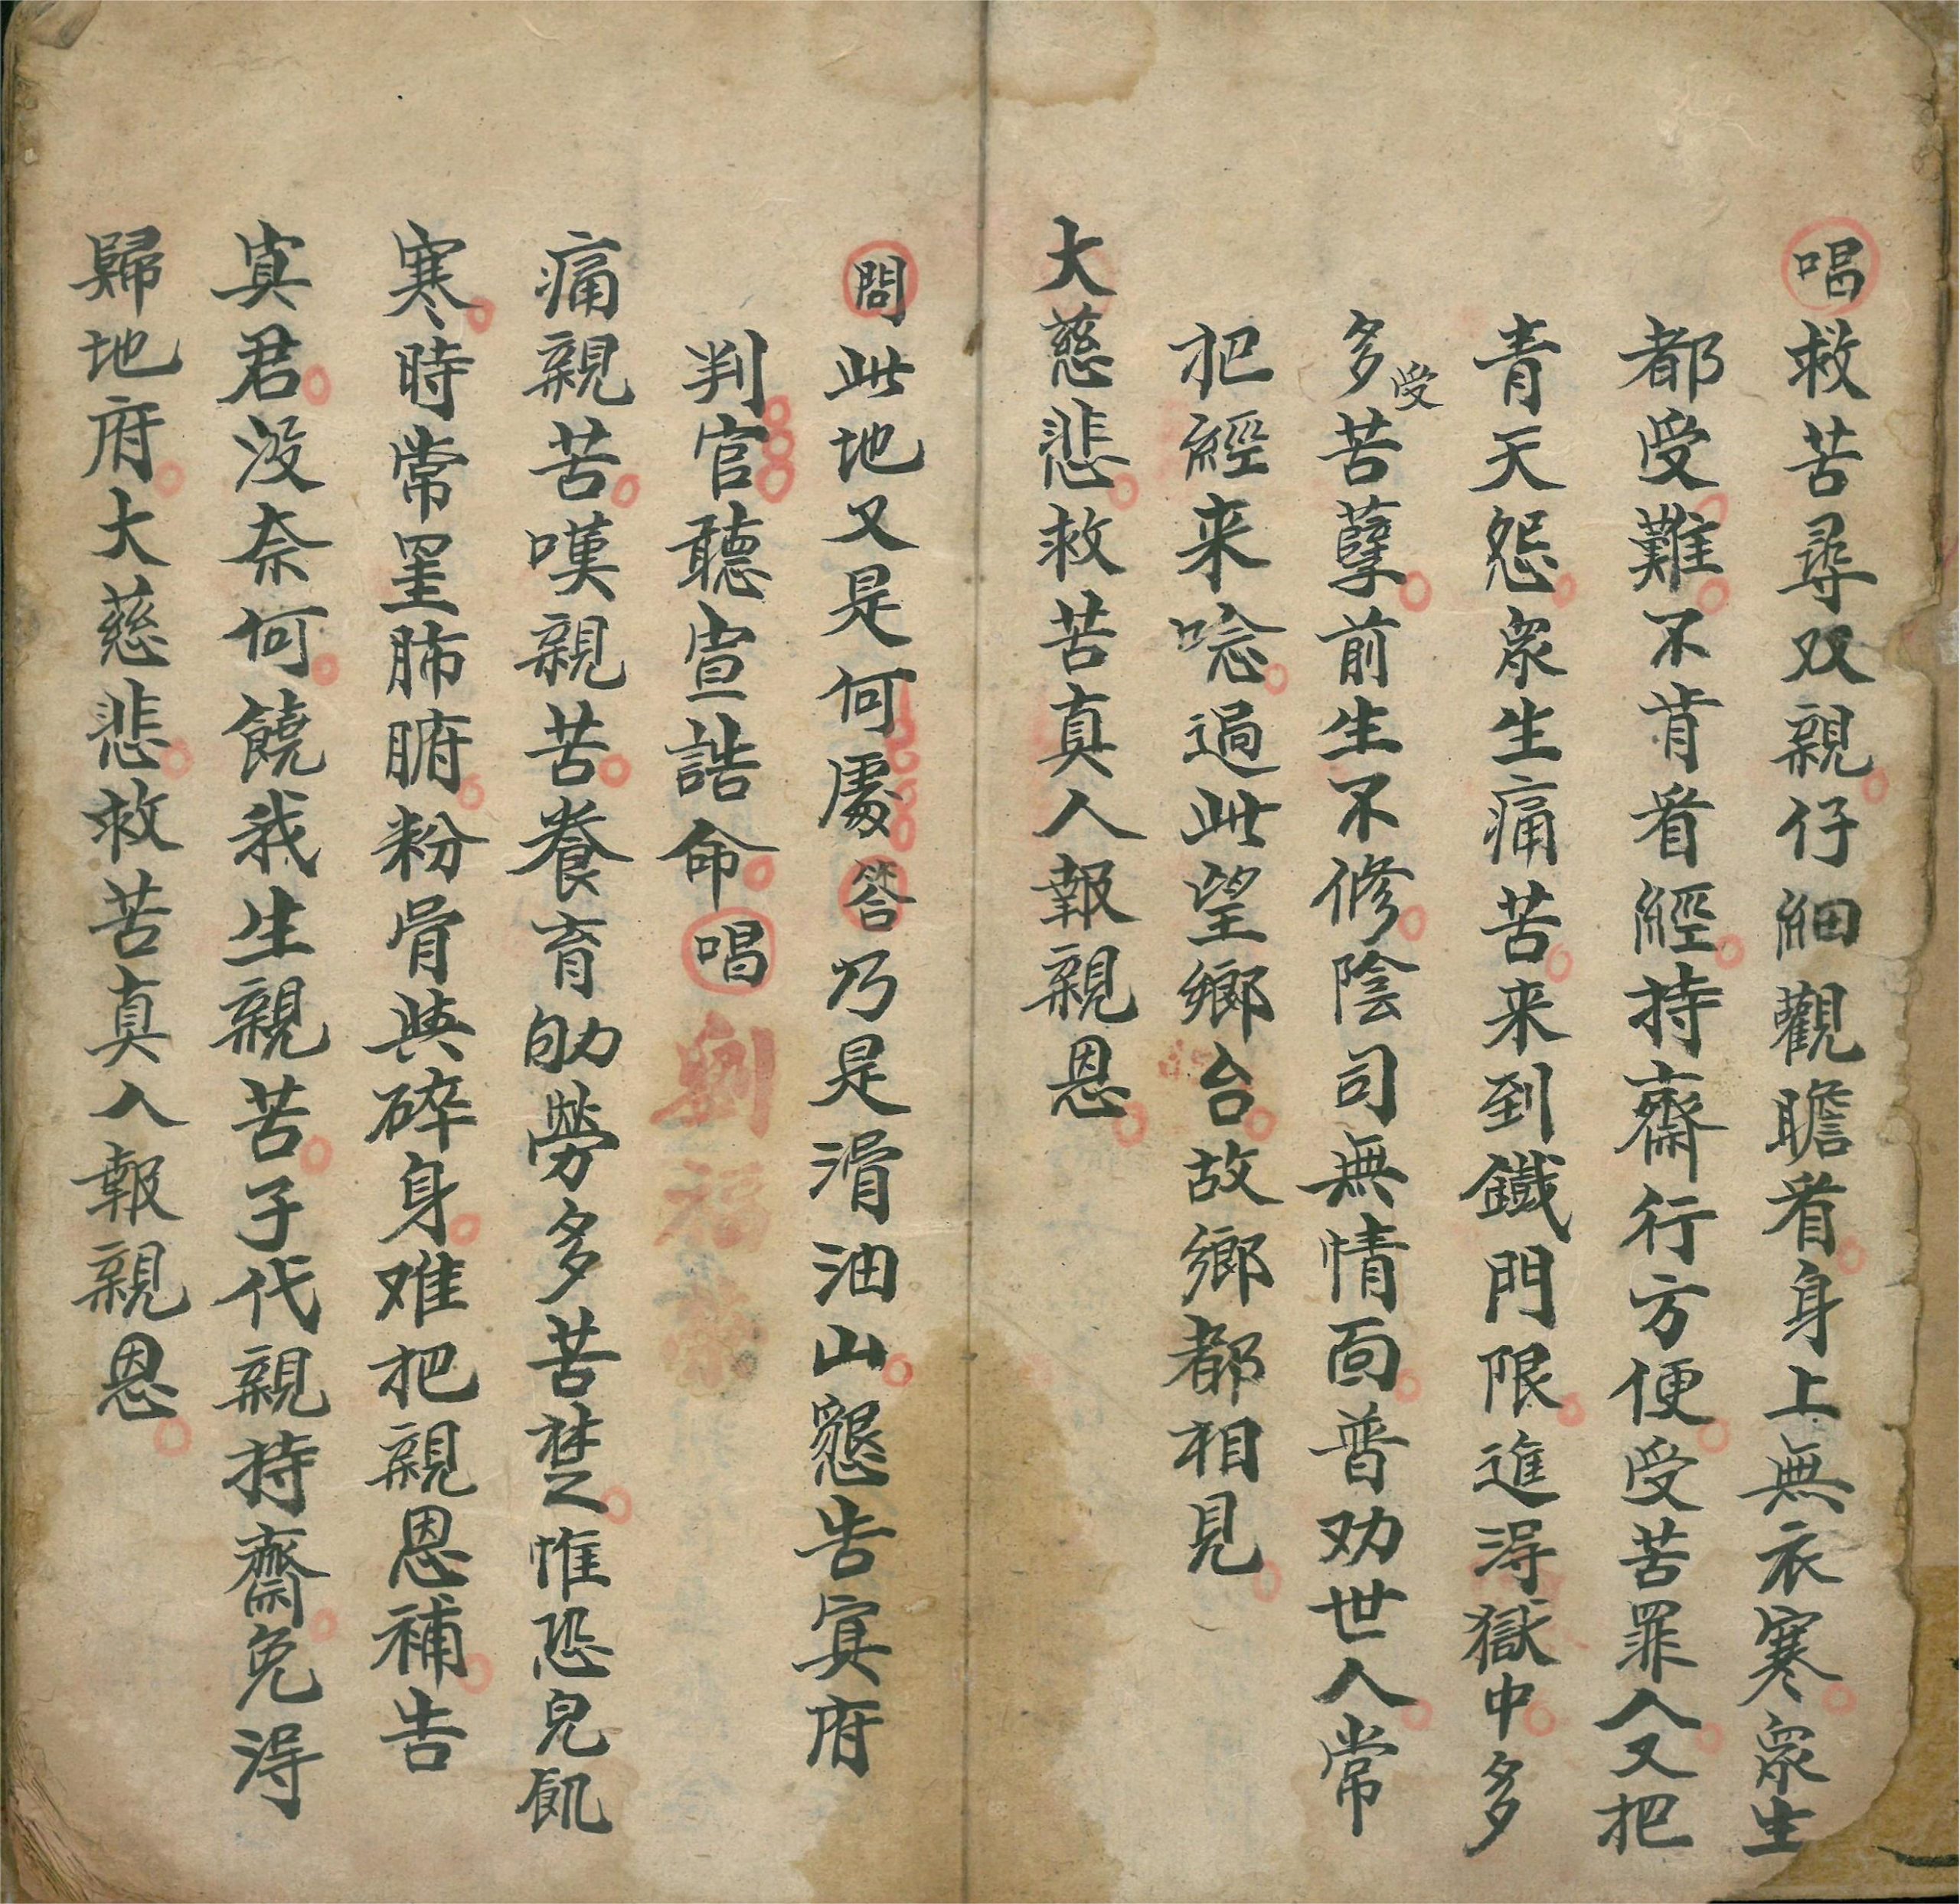 唱救苦尋双親仔細觀瞻看身上無衣寒衆生
都受難不肯看經持齋行方便受苦罪人又把
青天怨衆生痛苦来到鐵門限進得獄中多
多受苦孽前生不修陰司無情面普劝世人常
把經来唸過此望鄉台故鄉都相見
大慈悲救苦真人報親恩
問此地又是何處答乃是滑油山懇告冥府
判官聽宣誥命唱劉福榮
痛親苦嘆親苦養育劬勞多苦楚惟恐兒飢
寒時常罣肺腑粉骨與碎身难把親恩補告
真君没奈何饒我生親苦子代親持齋免得
歸地府大慈悲救苦真人報親恩